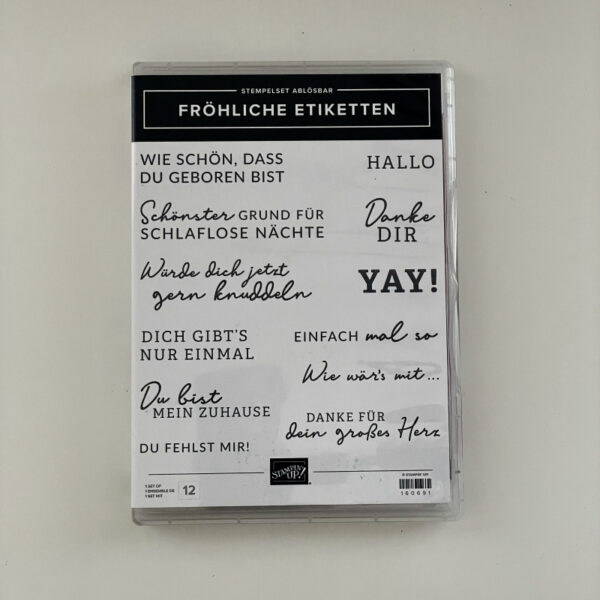 STEMPELSET ABLÖSBAR
FRÖHLICHE ETIKETTEN
WIE SCHÖN, DASS
DU GEBOREN BIST
HALLO
Schönster GRUND FÜR
SCHLAFLOSE NÄCHTE
Danke
DIR
Würde dich jetzt
gern knuddeln
YAY!
DICH GIBT'S
NUR EINMAL
EINFACH mal so
Wie wär's mit...
Du bist
MEIN ZUHAUSE
DANKE FÜR
dein großes Herz
DU FEHLST MIR!
STAMPIN' UP!
© STAMPIN' UP!
1 SET OF
1 ENSEMBLE DE
1 SET MIT
12
160691